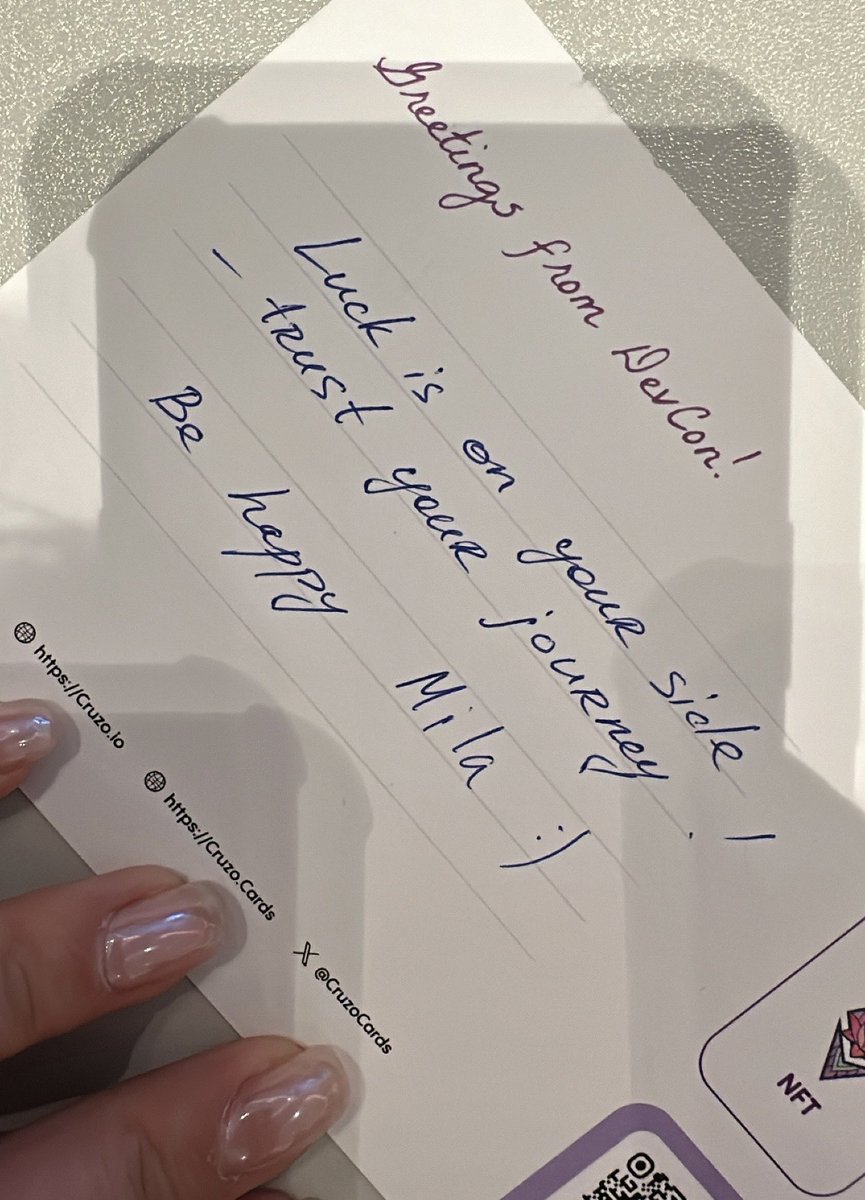 Greetings from DevCon!
Luck is on your side!
- trust your journey.
Be happy Mila :)
https://Cruzo.io
https://Cruzo.Cards
@CruzoCards
NFT